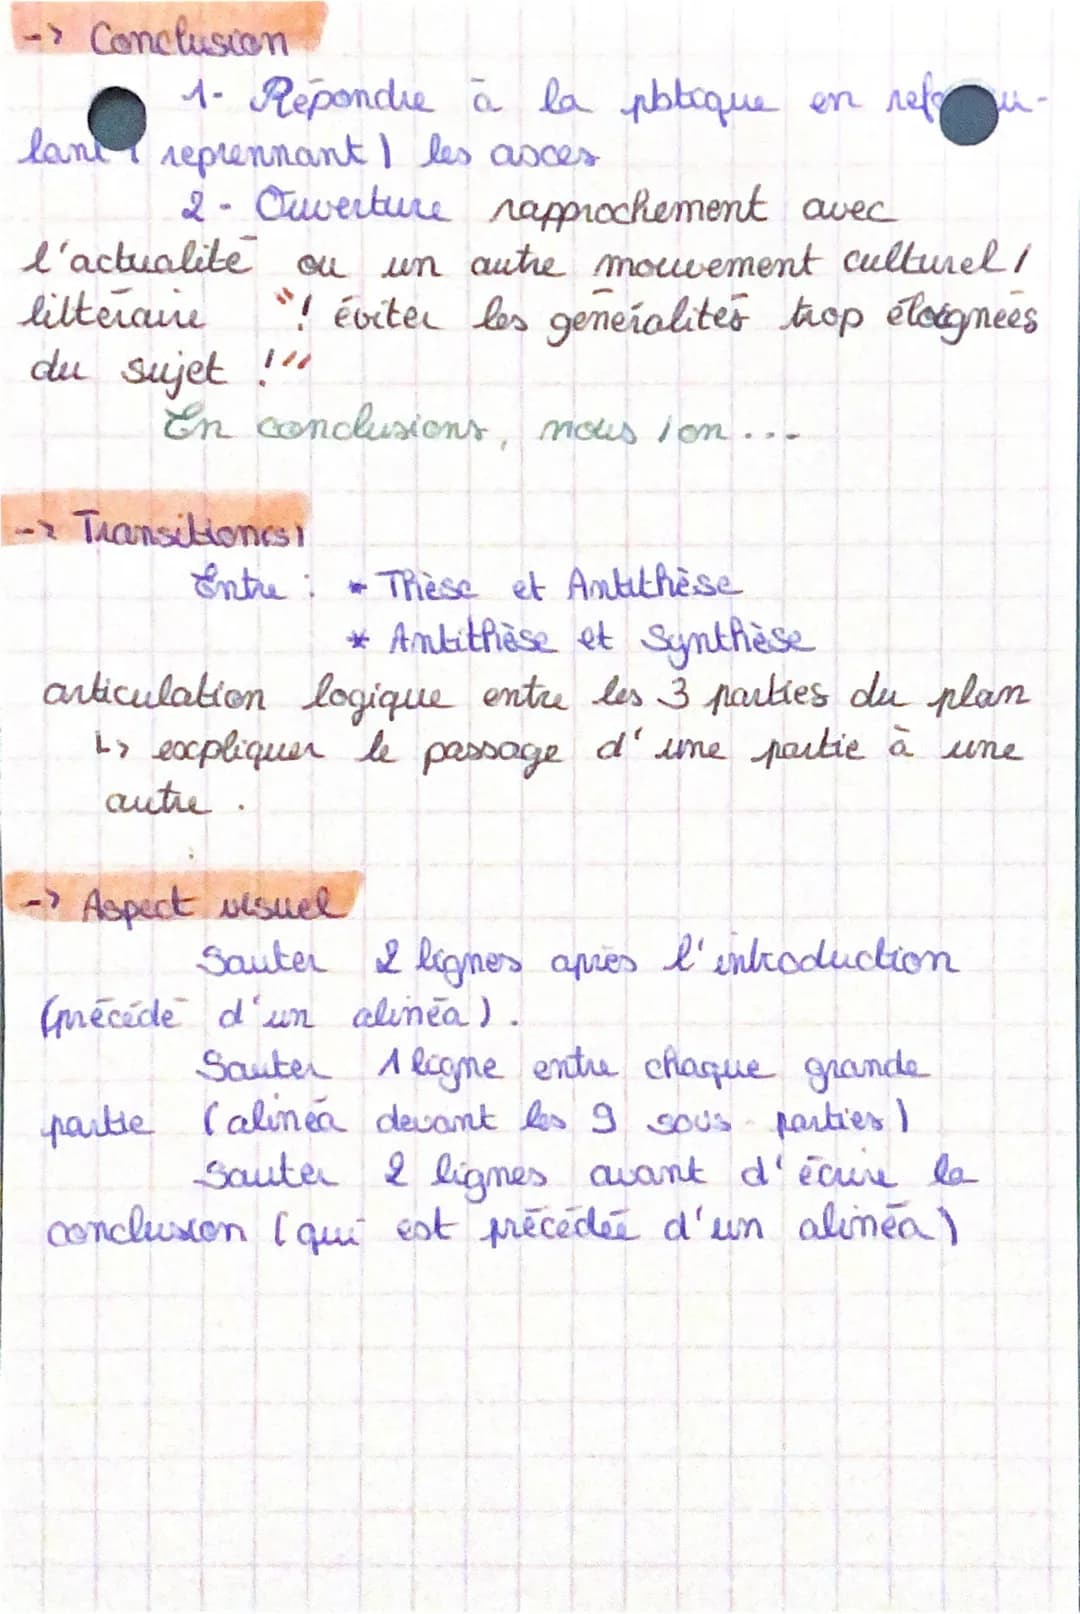 -> Conclusion
1- Répondre à la pbtique en refo u-
lant ( reprennant ) les axes
2- Ouverture rapprochement avec
l'actualité ou un autre mouvement culturel /
littéraire "! éviter les généralités trop éloignées
du sujet !"
En conclusions, nous / on ...
-> Transition(s)
Entre : * Thèse et Antithèse
* Antithèse et Synthèse
articulation logique entre les 3 parties du plan
↳ expliquer le passage d'une partie à une
autre .
-> Aspect visuel
Sauter 2 lignes après l'introduction
(précédé d'un alinéa).
Sauter 1 ligne entre chaque grande
partie (alinéa devant les 9 sous-parties)
Sauter 2 lignes avant d'écrire la
conclusion (qui est précédée d'un alinéa)